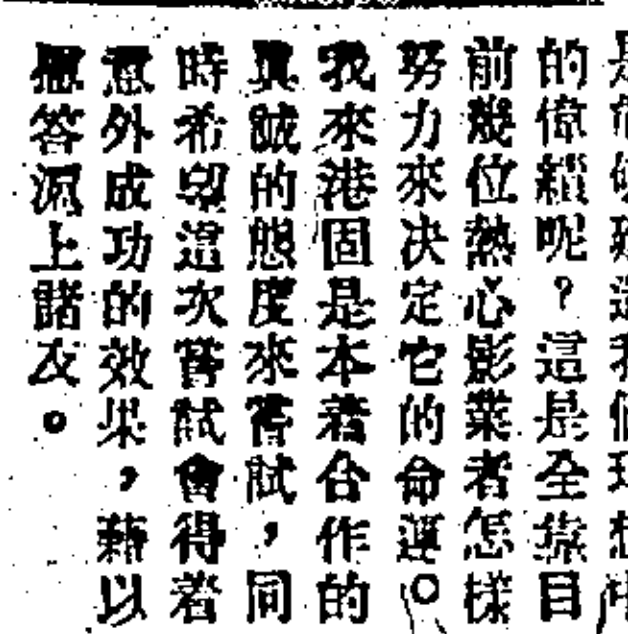 的偉績呢？這是全靠目
前幾位熱心影業者怎樣
努力來決定它的命運。
我來港固是本着合作的
眞誠的態度來嘗試，同
時希望這次嘗試會得着
意外成功的效果，藉以
報答滬上諸友。